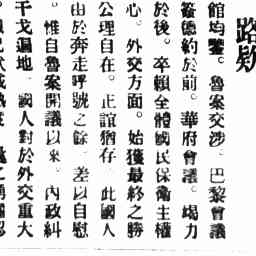 路欵
館均鑒。魯案交涉。巴黎會議
簽德約於前。華府會議。竭力
於後。卒賴全體國民保衛主權
心。外交方面。始獲最終之勝
公理自在。正誼猶存。此國人
由於奔走呼號之餘。差以自慰
。惟自魯案開議以來。內政糾
干戈遍地。國人對於外交重大